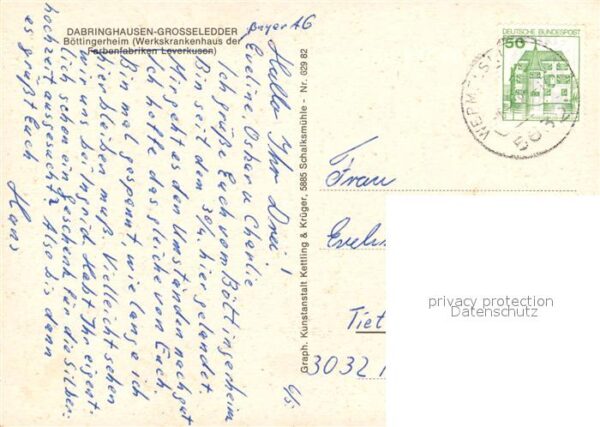 DABRINGHAUSEN-GROSSELEDDER
Böttingerheim (Werkskrankenhaus der
Farbenfabriken Leverkusen)
Bayer AG
Hallo Ihr Drei!
Eveline, Oskar u. Charlie
Ich grüße Euch vom Böttingerheim
Bin seit dem 30/4. hier gelandet.
Mir geht es den Umständen nach gut
Ich hoffe das gleiche von Euch.
Bin mal gespannt, wie lange ich
hier bleiben muß. Vielleicht sehen
wir uns bei Ingrid. Habt Ihr eigent-
lich schon ein Geschenk für die Silber-
hochzeit ausgesucht? Also bis dann
es grüßt Euch
Hans
Graph. Kunstanstalt Kettling & Krüger, 5885 Schalksmühle - Nr. 029 82
DEUTSCHE BUNDESPOST
50
WERM
563
Frau
Eveli
Tiet
3032
privacy protection
Datenschutz